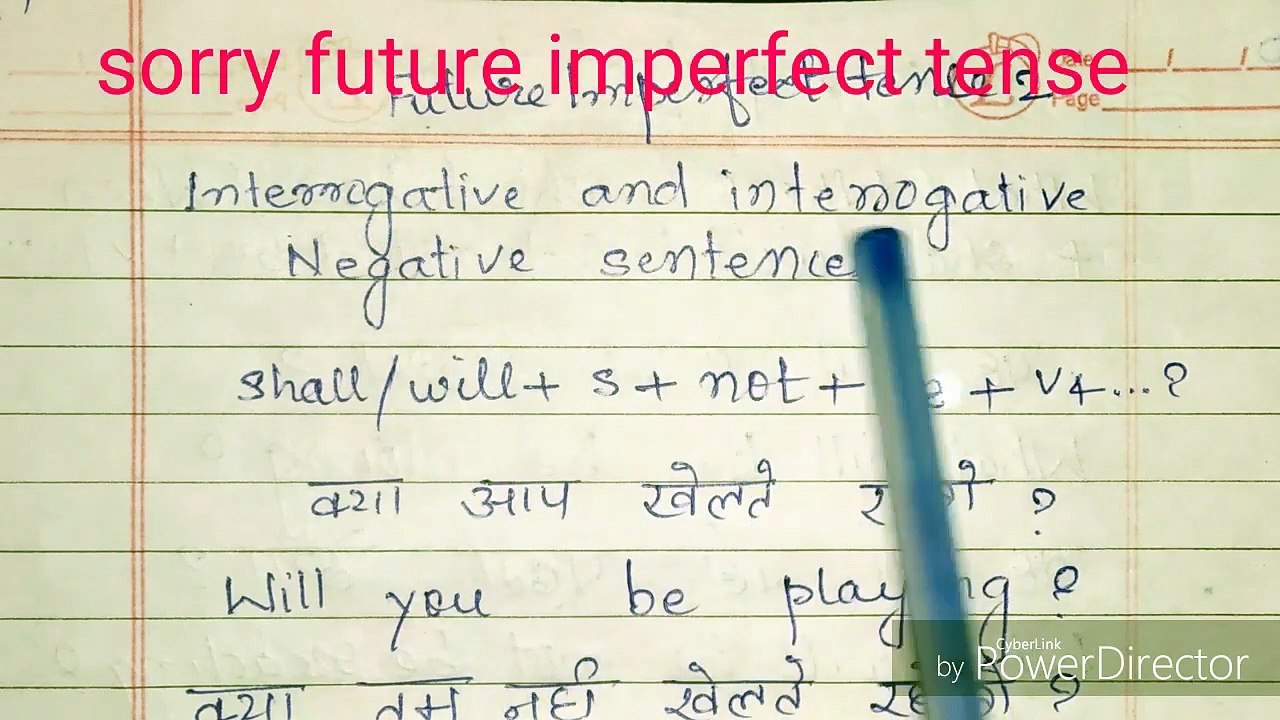 sorry future imperfect tense
Future Imperfect tence 2
Date / /
Page
Interrogative and interrogative
Negative sentence
Shall/will+ S+ not + + V4...?
क्या आप खेलते ?
Will you be playing ?
क्या तुम नहीं खेलते रहोगे ?
CyberLink
by PowerDirector